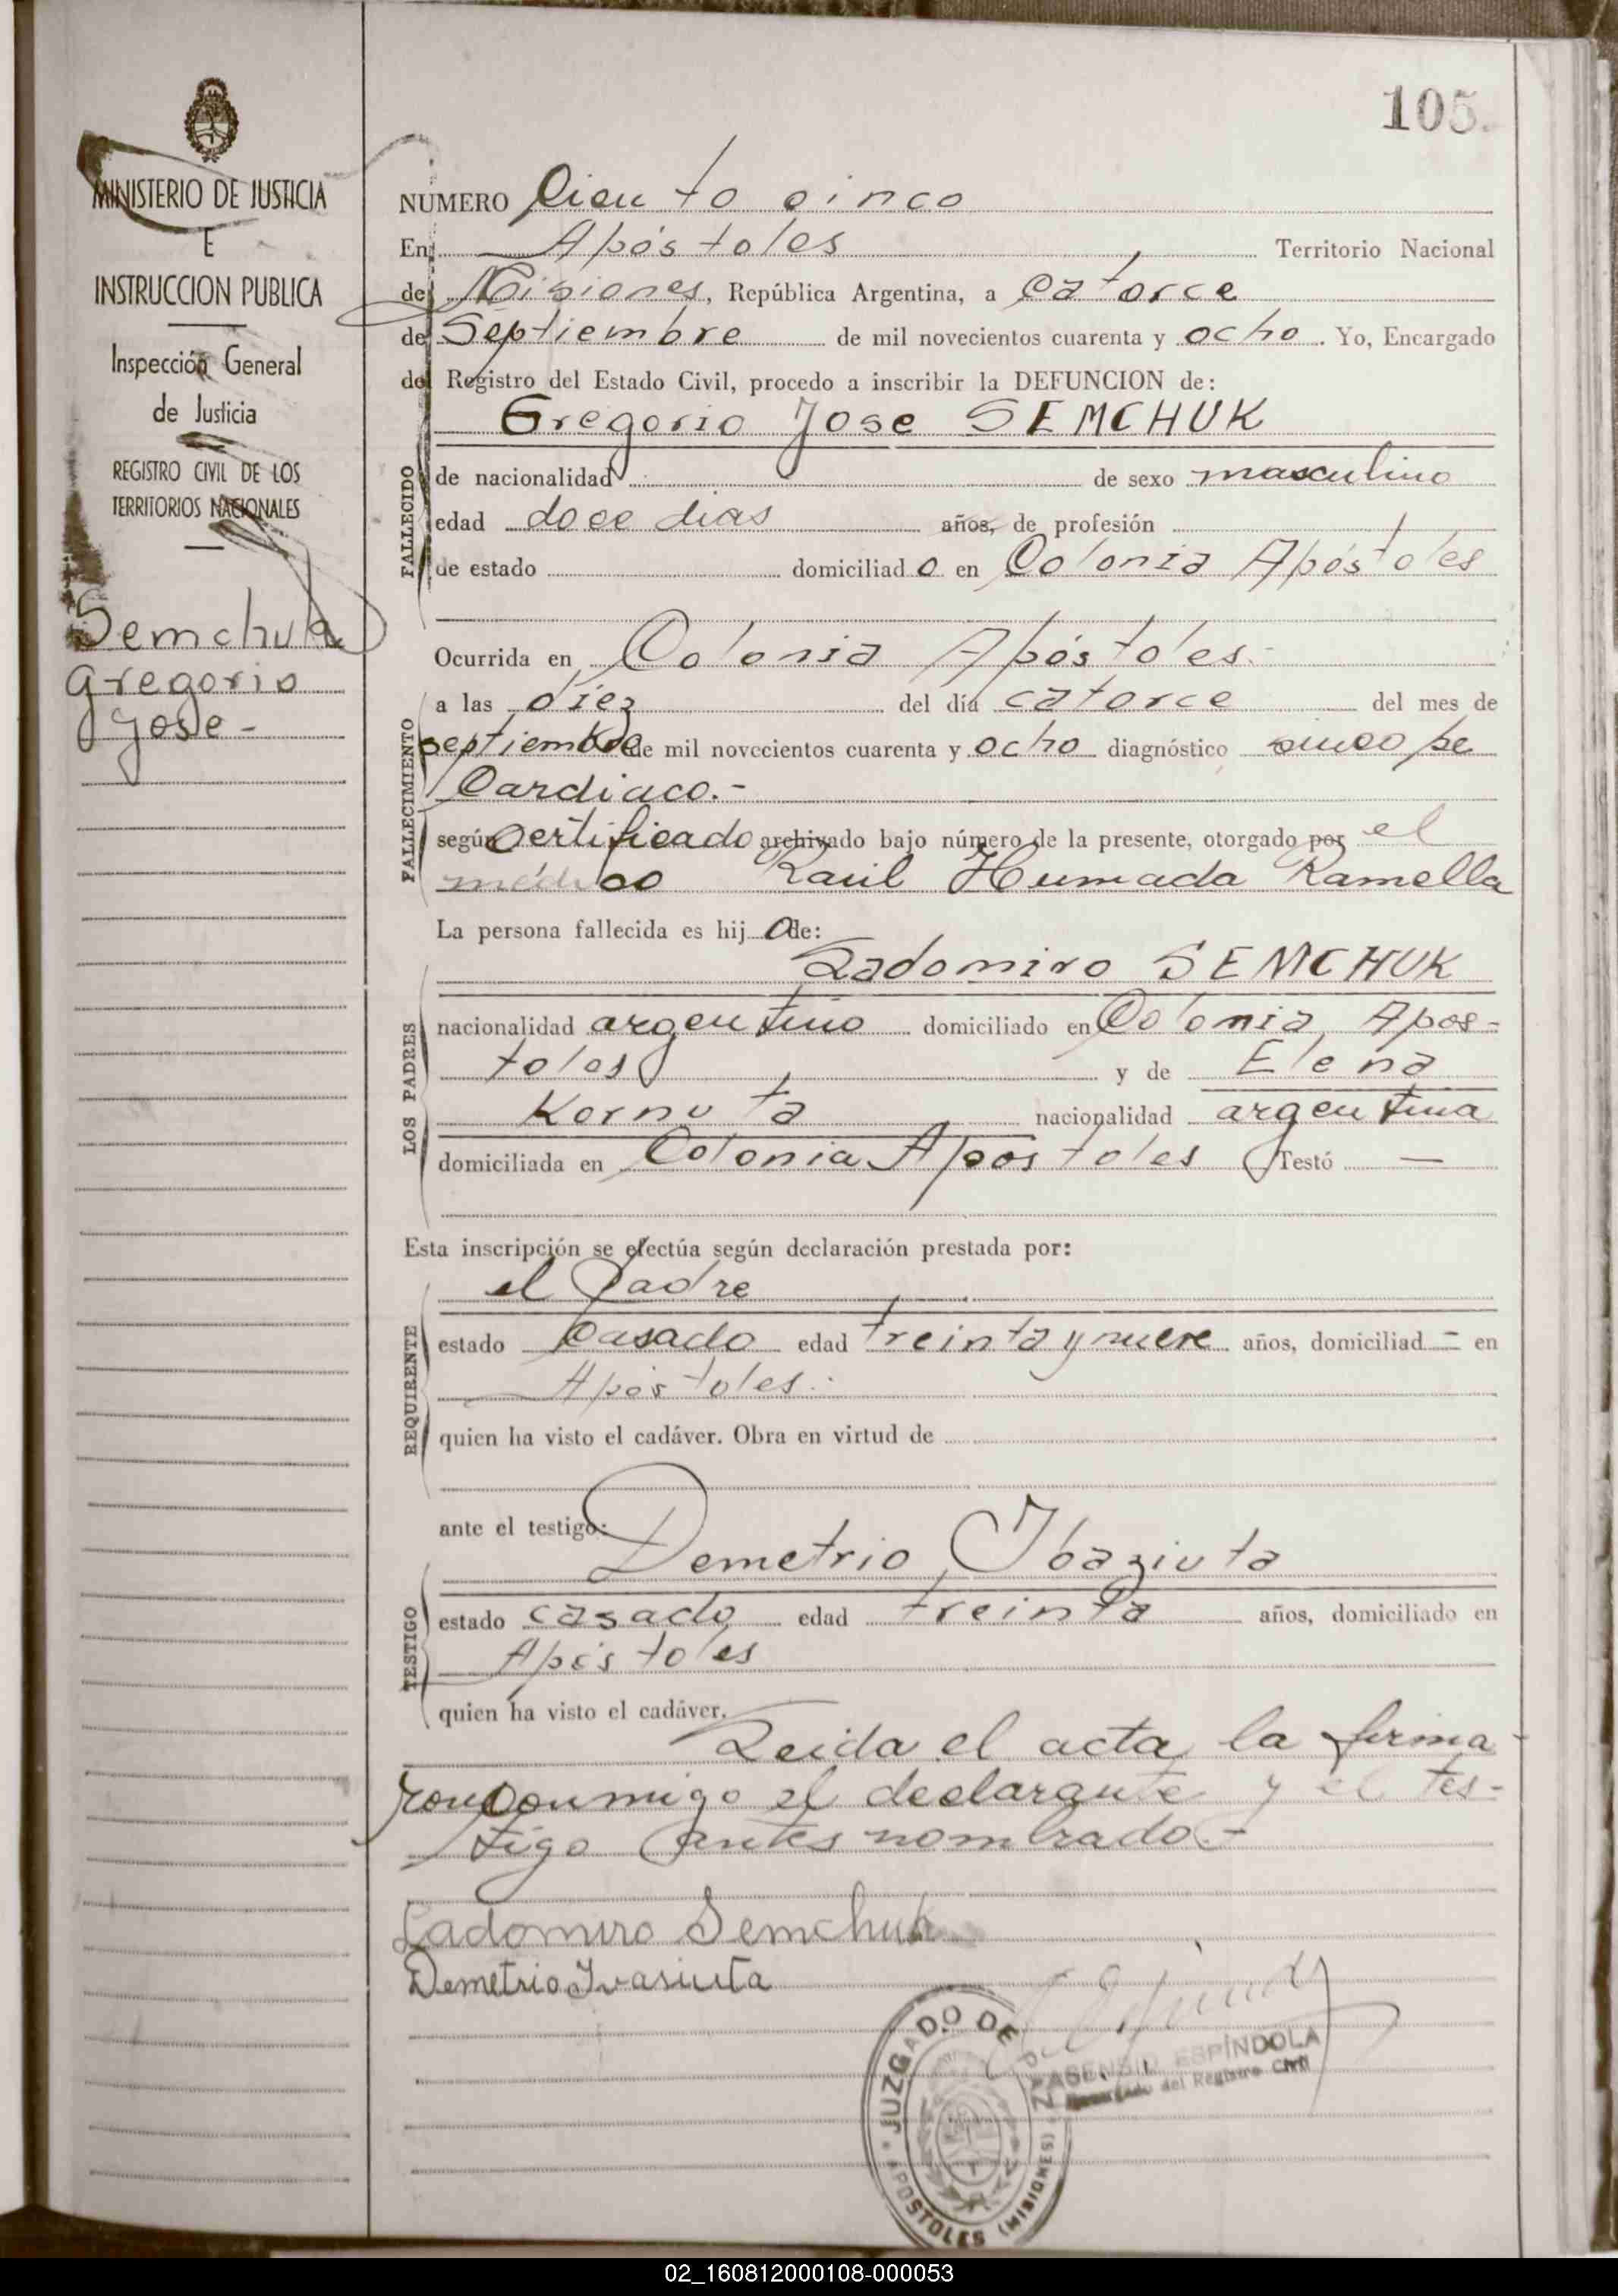 105.
MINISTERIO DE JUSTICIA
E
INSTRUCCION PUBLICA
Inspección General
de Justicia
REGISTRO CIVIL DE LOS
TERRITORIOS NACIONALES
Semchuk
Gregorio
Jose -
NUMERO Ciento cinco
En Apóstoles Territorio Nacional
de Misiones, República Argentina, a catorce
de Septiembre de mil novecientos cuarenta y ocho. Yo, Encargado
del Registro del Estado Civil, procedo a inscribir la DEFUNCION de:
Gregorio Jose SEMCHUK
FALLECIDO
de nacionalidad de sexo masculino
edad doce dias años, de profesión
de estado domiciliado en Colonia Apóstoles
Ocurrida en Colonia Apóstoles.-
FALLECIMIENTO
a las diez del día catorce del mes de
septiembre de mil novecientos cuarenta y ocho diagnóstico
Cardiaco.-
según certificado archivado bajo número de la presente, otorgado por el
médico Raúl Humada Ramella
La persona fallecida es hijo de:
LOS PADRES
Ladomiro SEMCHUK
nacionalidad argentino domiciliado en Colonia Apos-
toles y de Elena
Kornuta nacionalidad argentina
domiciliada en Colonia Apostoles Testó —
Esta inscripción se efectúa según declaración prestada por:
REQUIRENTE
el Padre
estado casado edad treinta y nueve años, domiciliad - en
Apóstoles.-
quien ha visto el cadáver. Obra en virtud de
ante el testigo:
TESTIGO
Demetrio Ibaziuta
estado casado edad treinta años, domiciliado en
Apóstoles
quien ha visto el cadáver.
Leida el acta la firma-
ron conmigo el declarante y el tes-
tigo antes nombrado.-
Ladomiro Semchuk
Demetrio Ivasiuta
JUZGADO DE PAZ
APOSTOLES (MISIONES)
ASENSIO ESPÍNDOLA
Encargado del Registro Civil
02_160812000108-000053